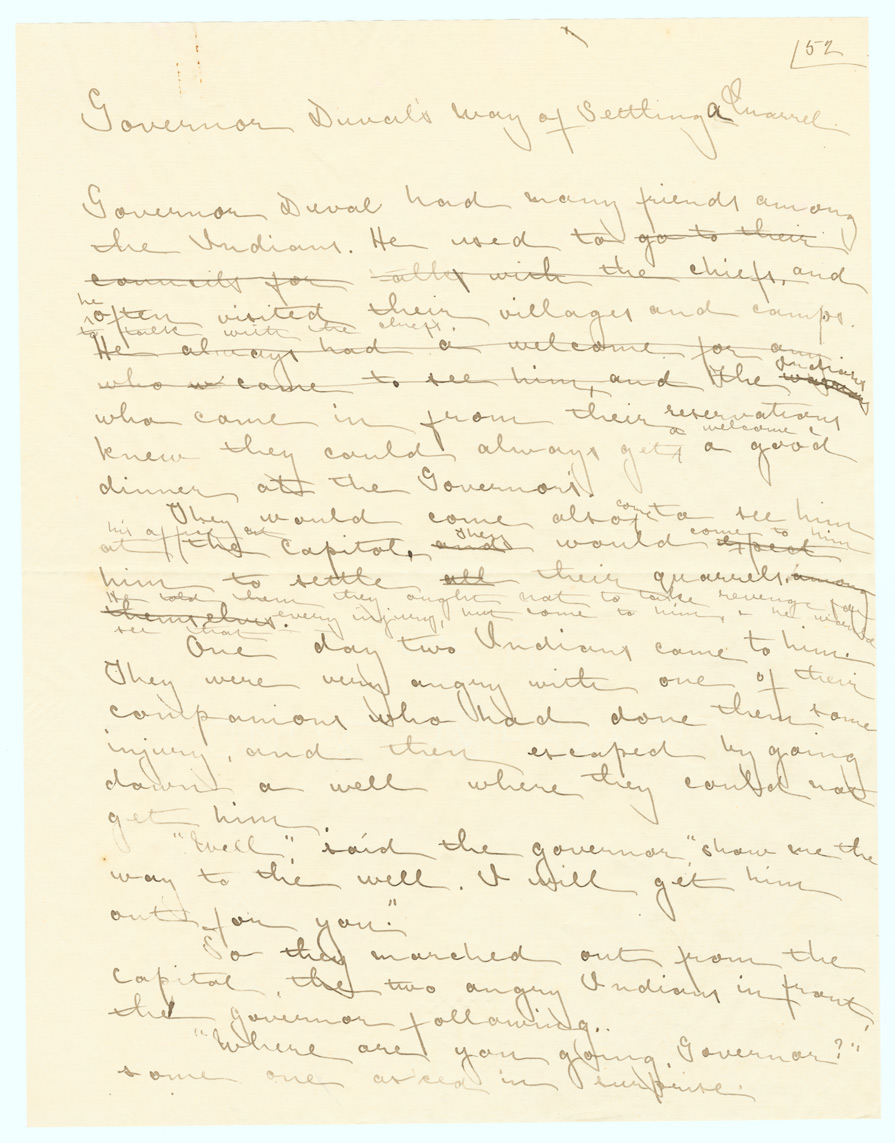 52
Governor Duval's Way of Settling a Quarrel.
Governor Duval had many friends among
the Indians. He used to go to their
councils for talks with the chiefs, and
he
often visited their villages and camps.
to talk with the chiefs.
He always had a welcome for any
Indians
who came to see him, and the
who came in from their reservations
a welcome &
knew they could always get a good
dinner at the Governor's.
come
They would come also to see him
his office at They come to him
at the Capitol, and would expect
him to settle all their quarrels among
He told them they ought not to take revenge for
themselves. every injury, but come to him, & he would
see that
One day two Indians came to him.
They were very angry with one of their
companions who had done them some
injury, and then escaped by going
down a well where they could not
get him.
"Well" said the governor "show me the
way to the well. I will get him
out for you."
So they marched out from the
capitol, the two angry Indians in front,
the governor following.
"Where are you going, Governor?"
some one asked in surprise.